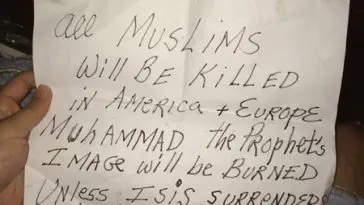 All MUSLIMS
Will BE KillED
in AMERICA + EUROPE
MuhAMMAD The PROPhET'S
IMAGE will be BURNED
UNless ISIS SURRENDERS